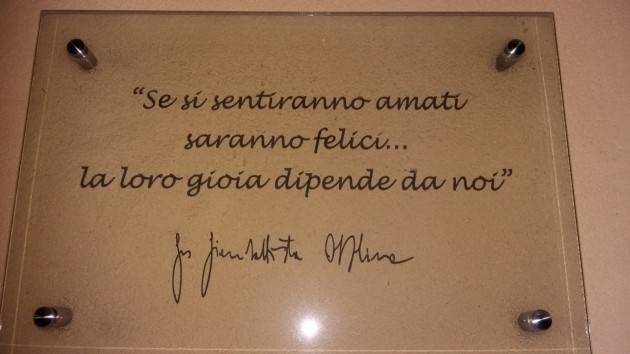 “Se si sentiranno amati
saranno felici...
la loro gioia dipende da noi”